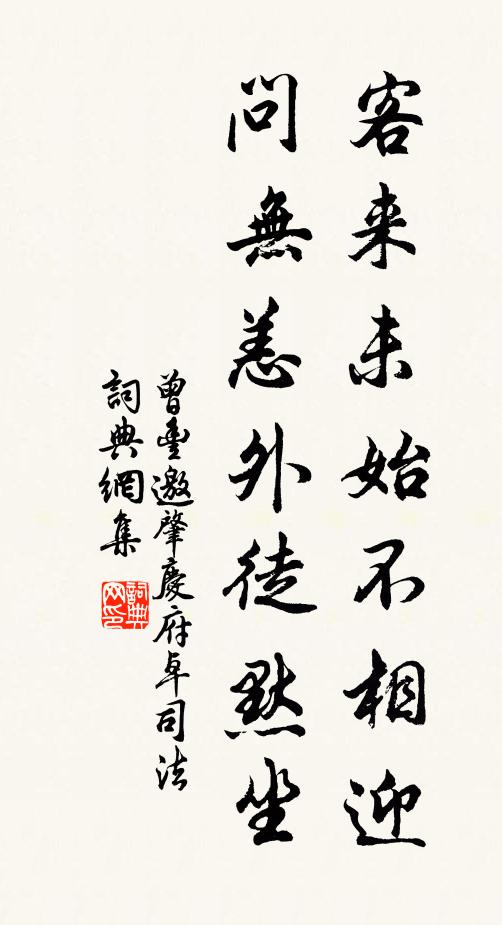 客来未始不相迎
問無恙外徒默坐
曾豐邀肇慶府卓司法
詞典網集
詞典网印